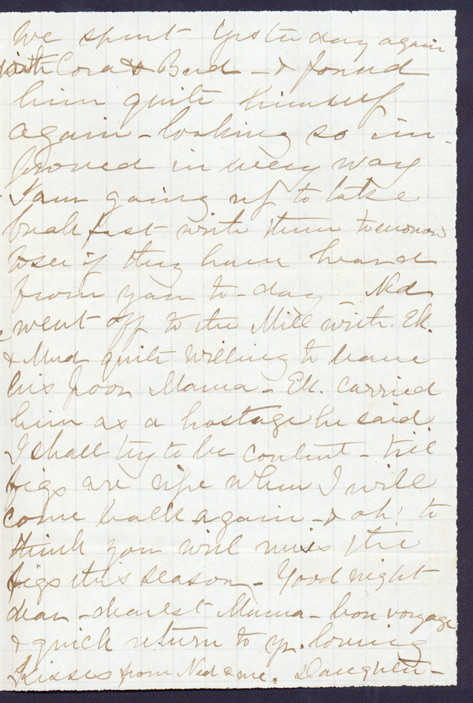 We spent yesterday again
with Cora & Bud - & found
him quite himself
again - looking so im-
proved in every way
I am going up to take
breakfast with them tomorrow
to see if they have heard
from you to-day Ned
went off to the Mill with Ek.
& Mud quite willing to leave
his poor Mama - Ek. carried
him as a hostage he said
I shall try to be content - till
figs are ripe when I will
come back again - & oh! to
think you will miss the
figs this season - Good night
dear - dearest Mama - bon voyage
& quick return to yr. loving
Kisses from Ned & me. Daughter -